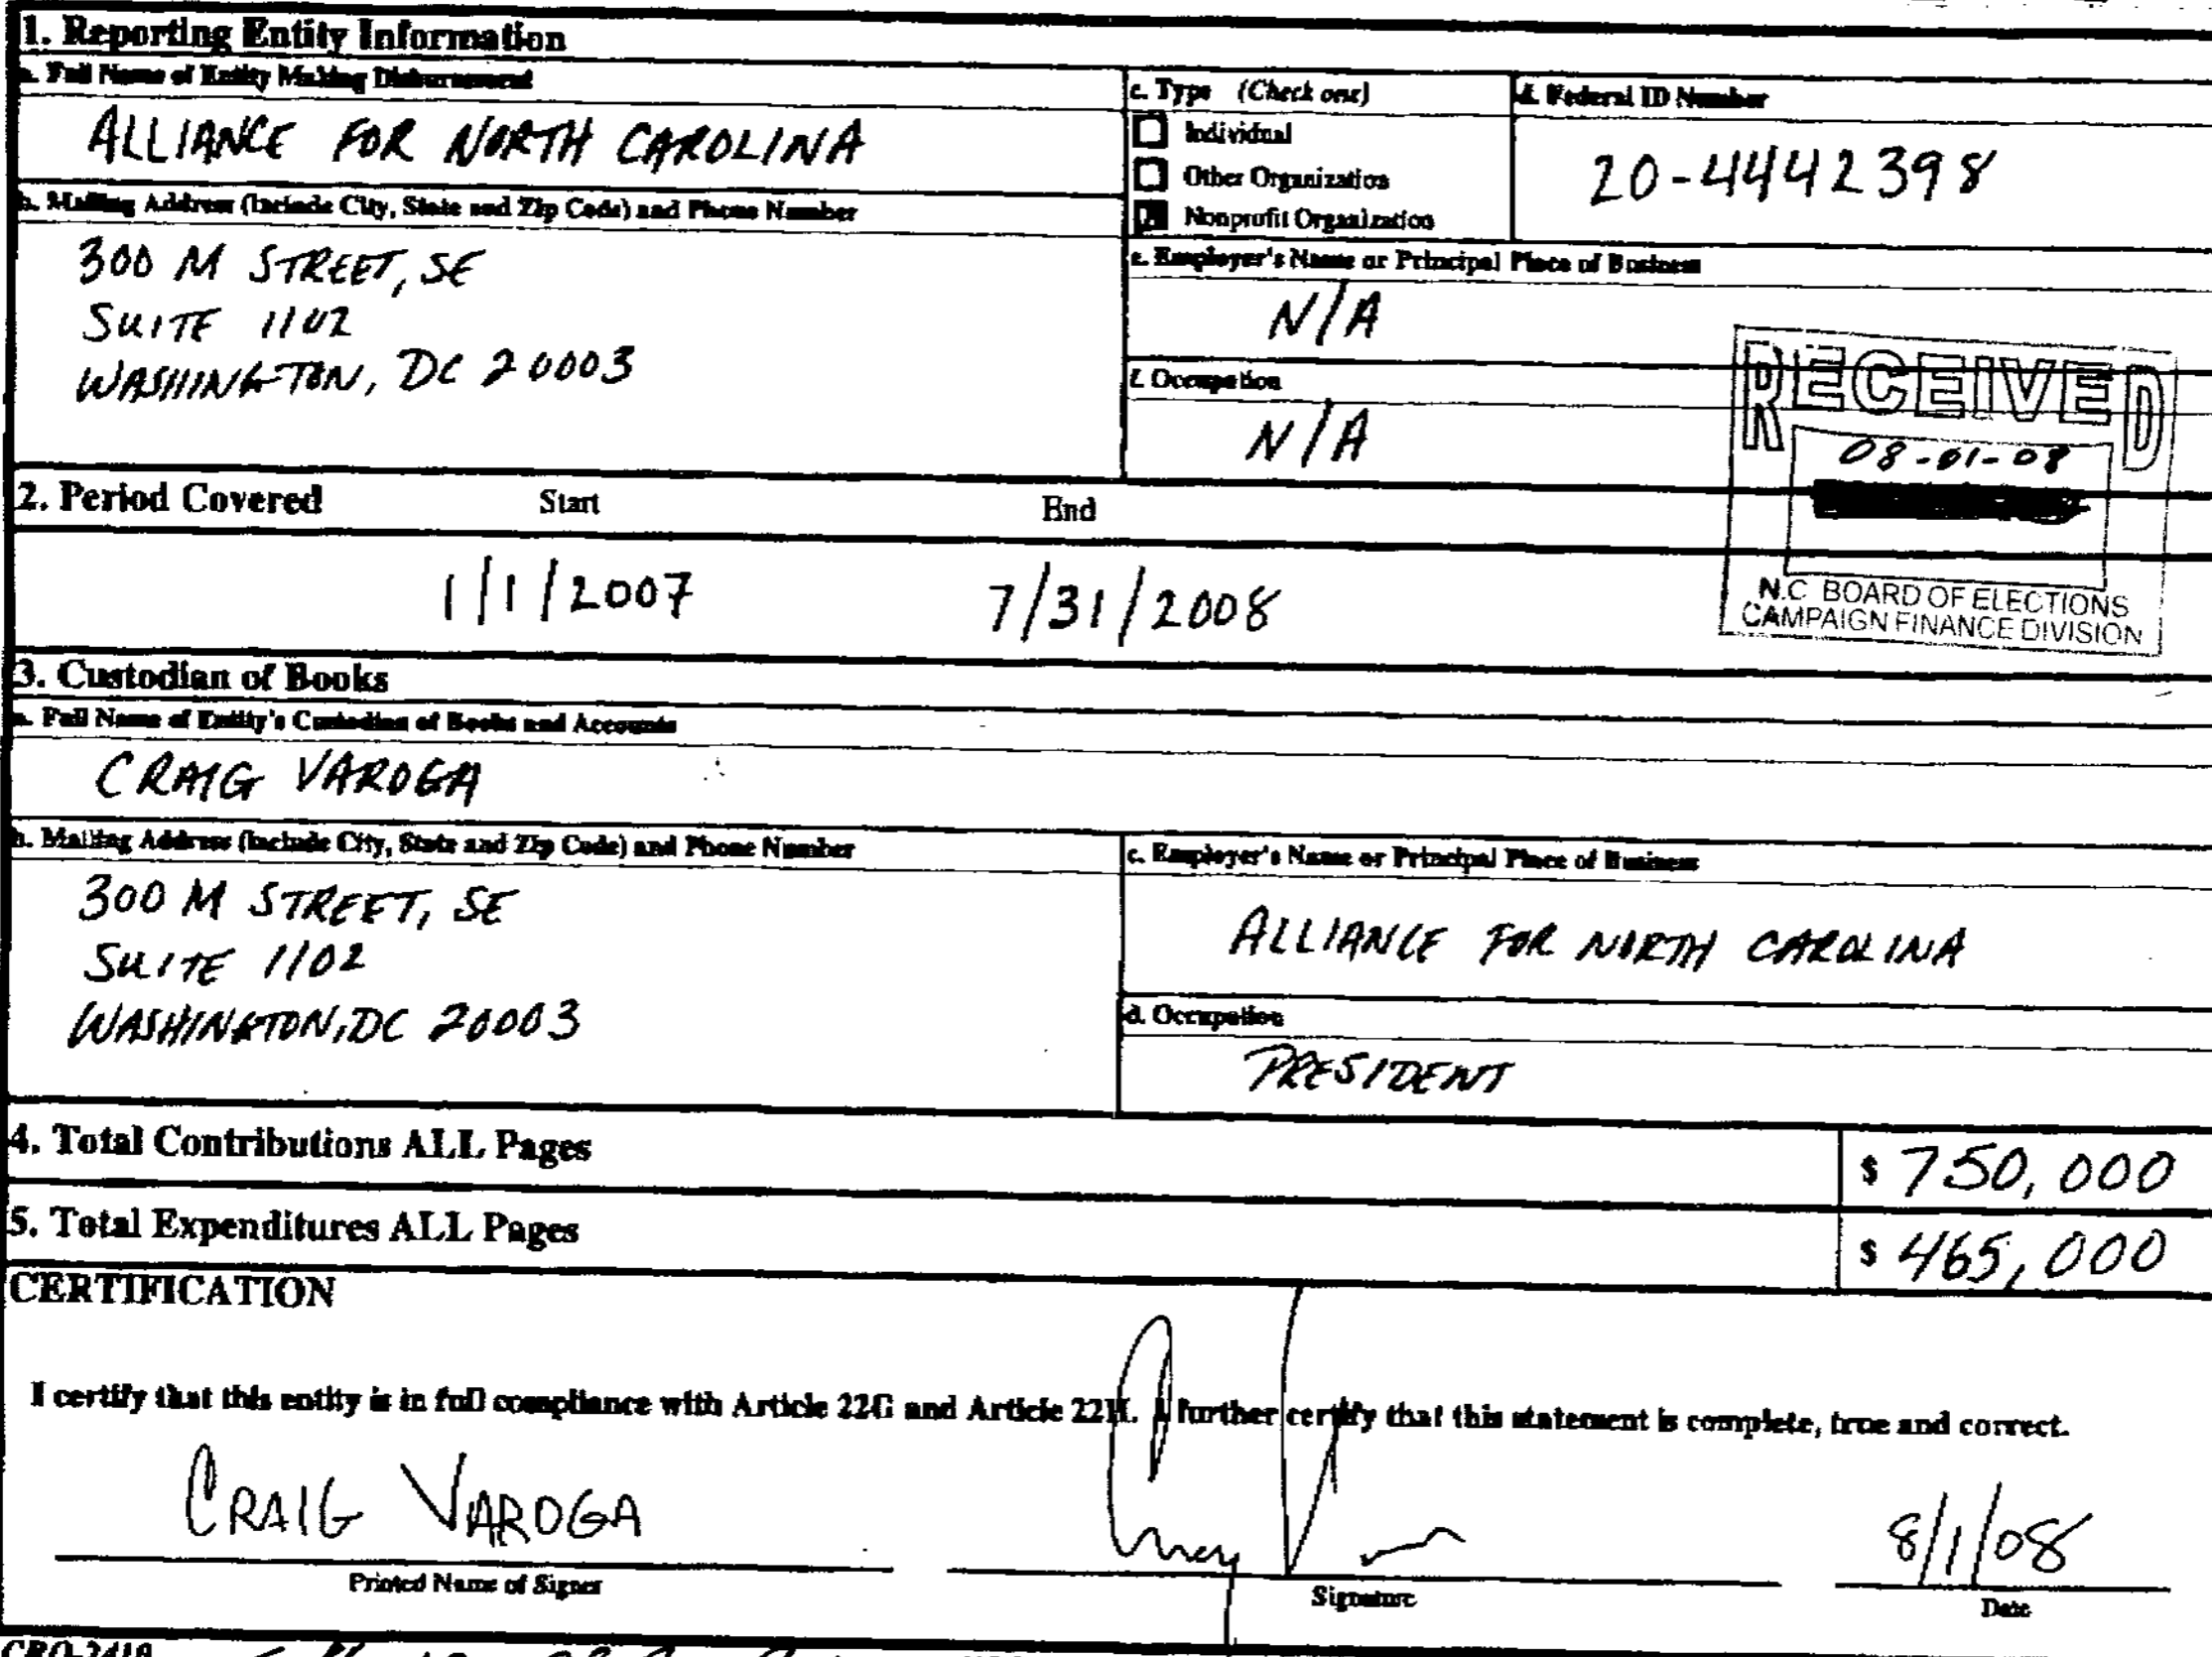 1. Reporting Entity Information
a. Full Name of Entity Making Disbursement
ALLIANCE FOR NORTH CAROLINA
b. Mailing Address (Include City, State and Zip Code) and Phone Number
300 M STREET, SE
SUITE 1102
WASHINGTON, DC 20003
c. Type (Check one)
Individual
Other Organization
Nonprofit Organization
d. Federal ID Number
20-4442398
e. Employer's Name or Principal Place of Business
N/A
f. Occupation
N/A
RECEIVED
08-01-08
N.C BOARD OF ELECTIONS
CAMPAIGN FINANCE DIVISION
2. Period Covered Start End
1/1/2007 7/31/2008
3. Custodian of Books
a. Full Name of Entity's Custodian of Books and Accounts
CRAIG VAROGA
b. Mailing Address (Include City, State and Zip Code) and Phone Number
300 M STREET, SE
SUITE 1102
WASHINGTON, DC 20003
c. Employer's Name or Principal Place of Business
ALLIANCE FOR NORTH CAROLINA
d. Occupation
PRESIDENT
4. Total Contributions ALL Pages $ 750,000
5. Total Expenditures ALL Pages $ 465,000
CERTIFICATION
I certify that this entity is in full compliance with Article 22G and Article 22H. I further certify that this statement is complete, true and correct.
CRAIG VAROGA 8/1/08
Printed Name of Signer Signature Date